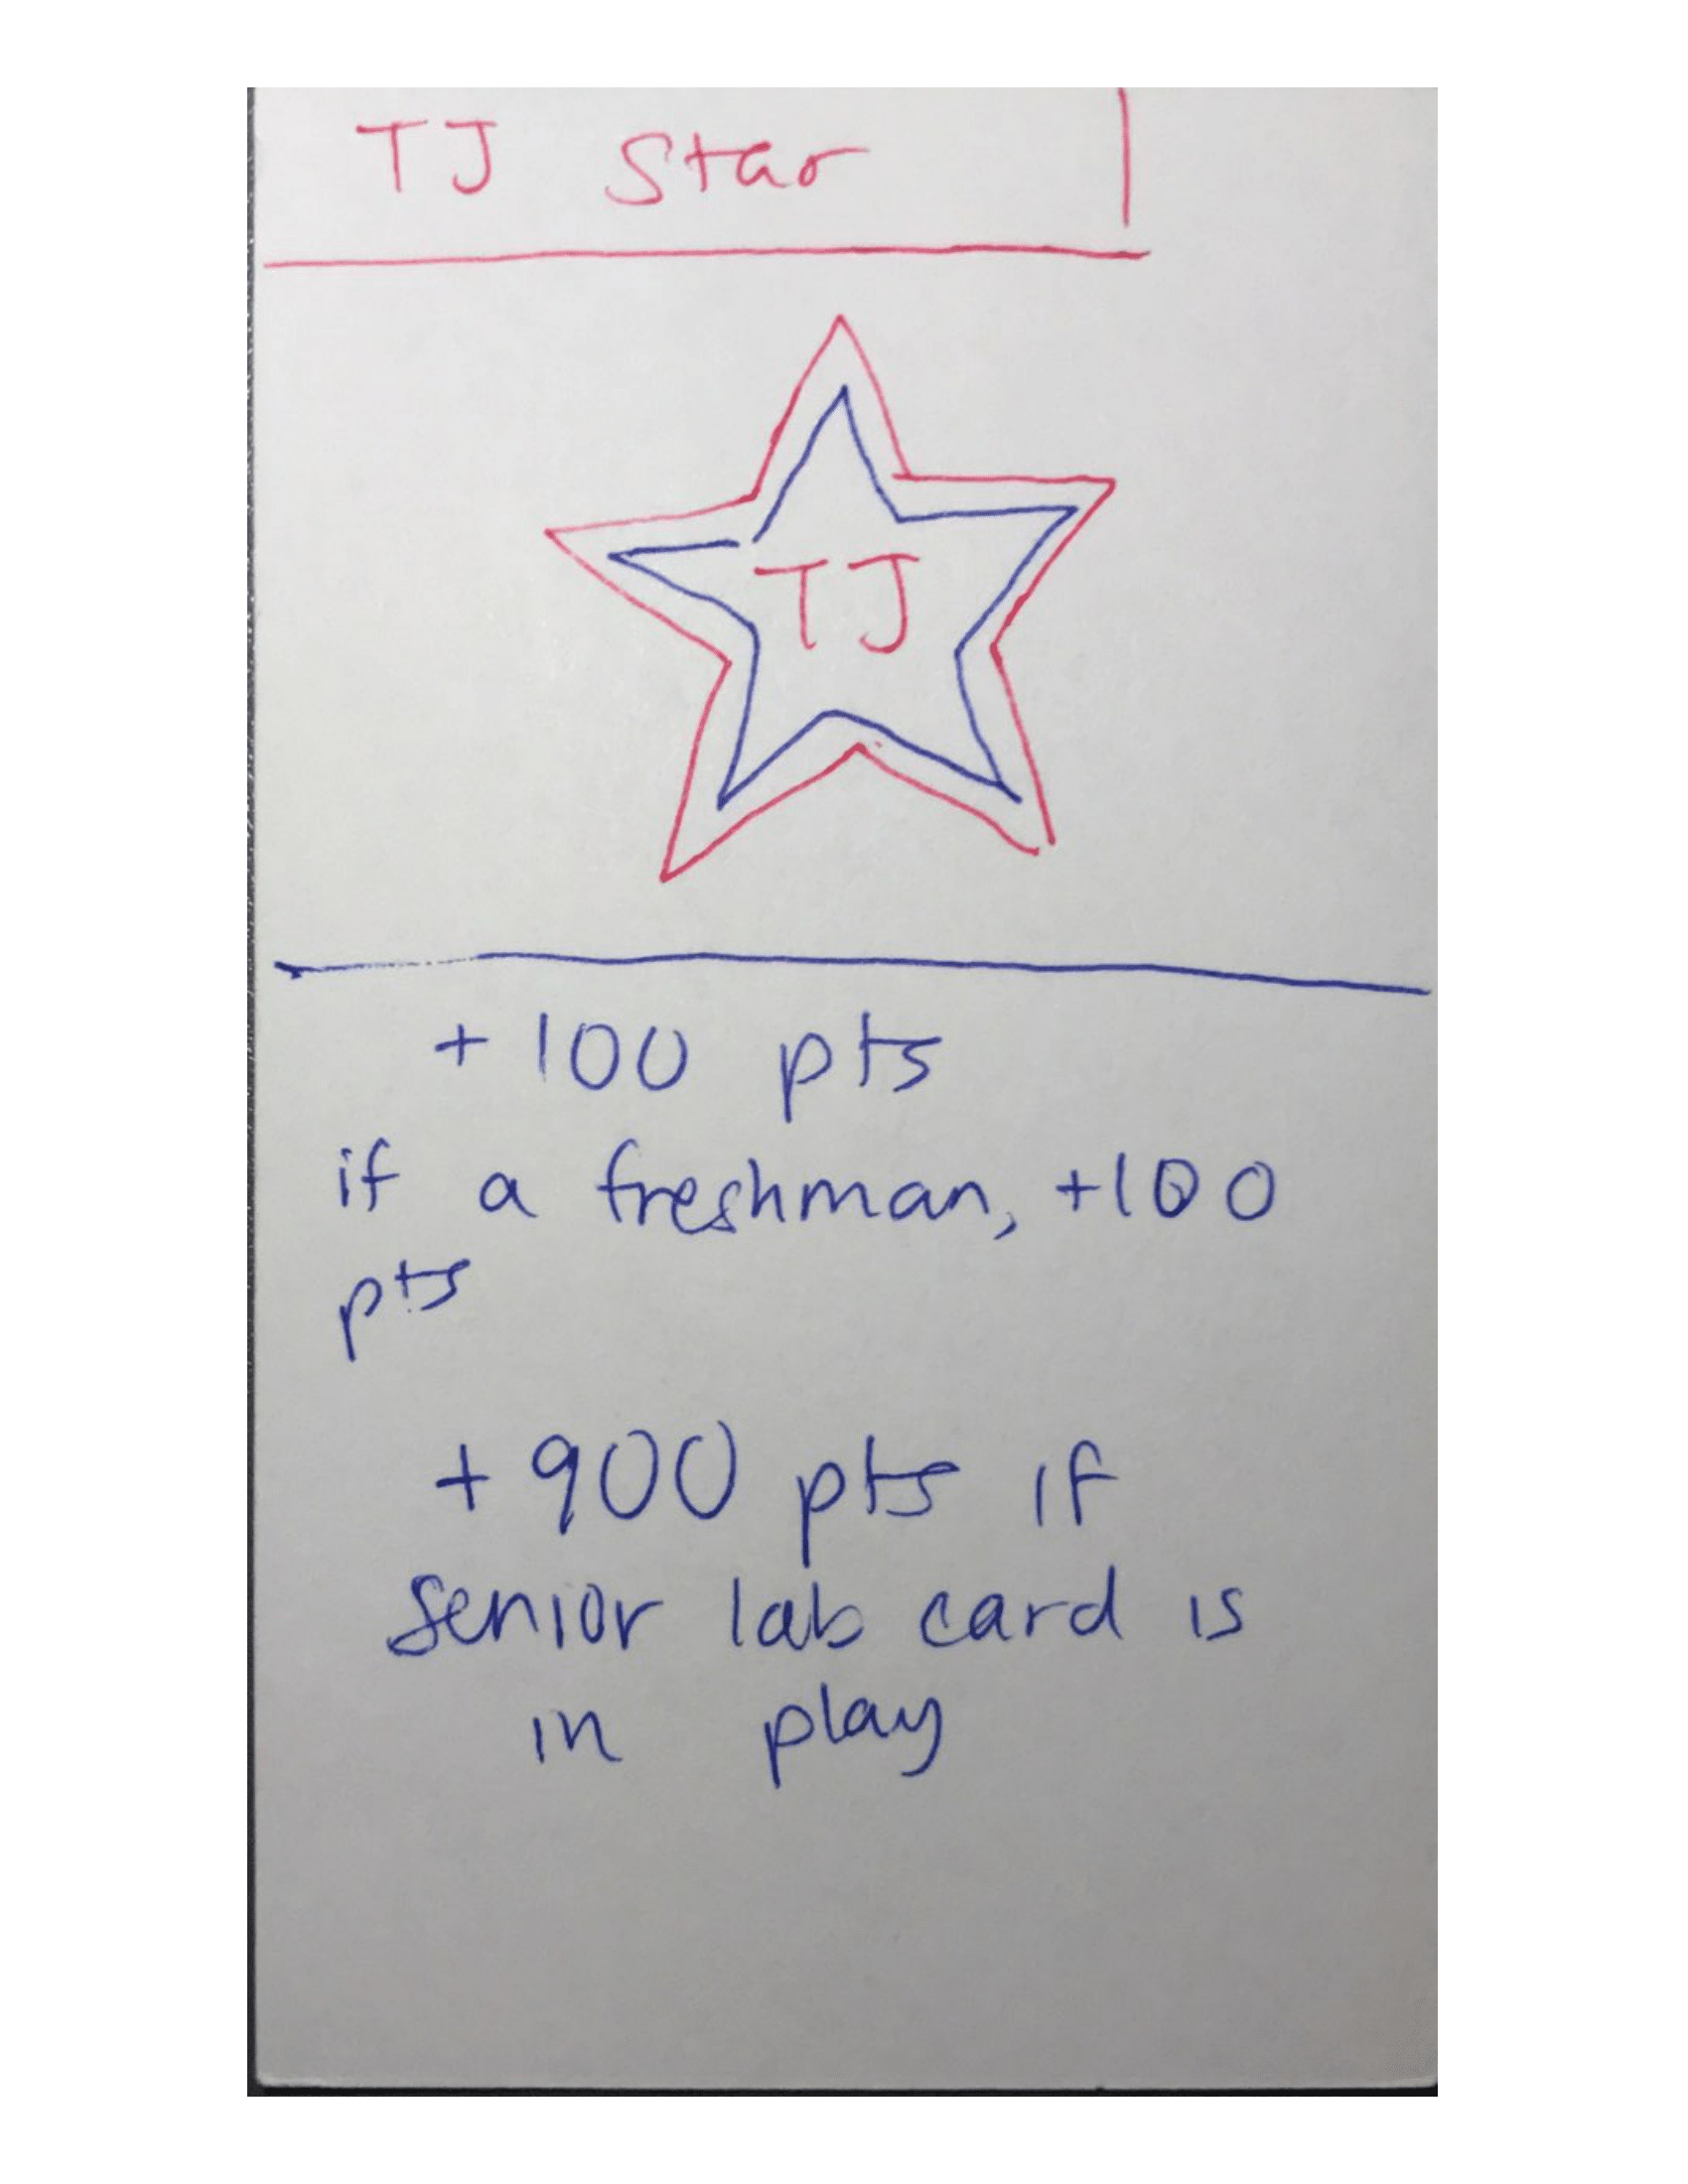 TJ Star
TJ
+ 100 pts
if a freshman, +100
pts
+ 900 pts if
senior lab card is
in play